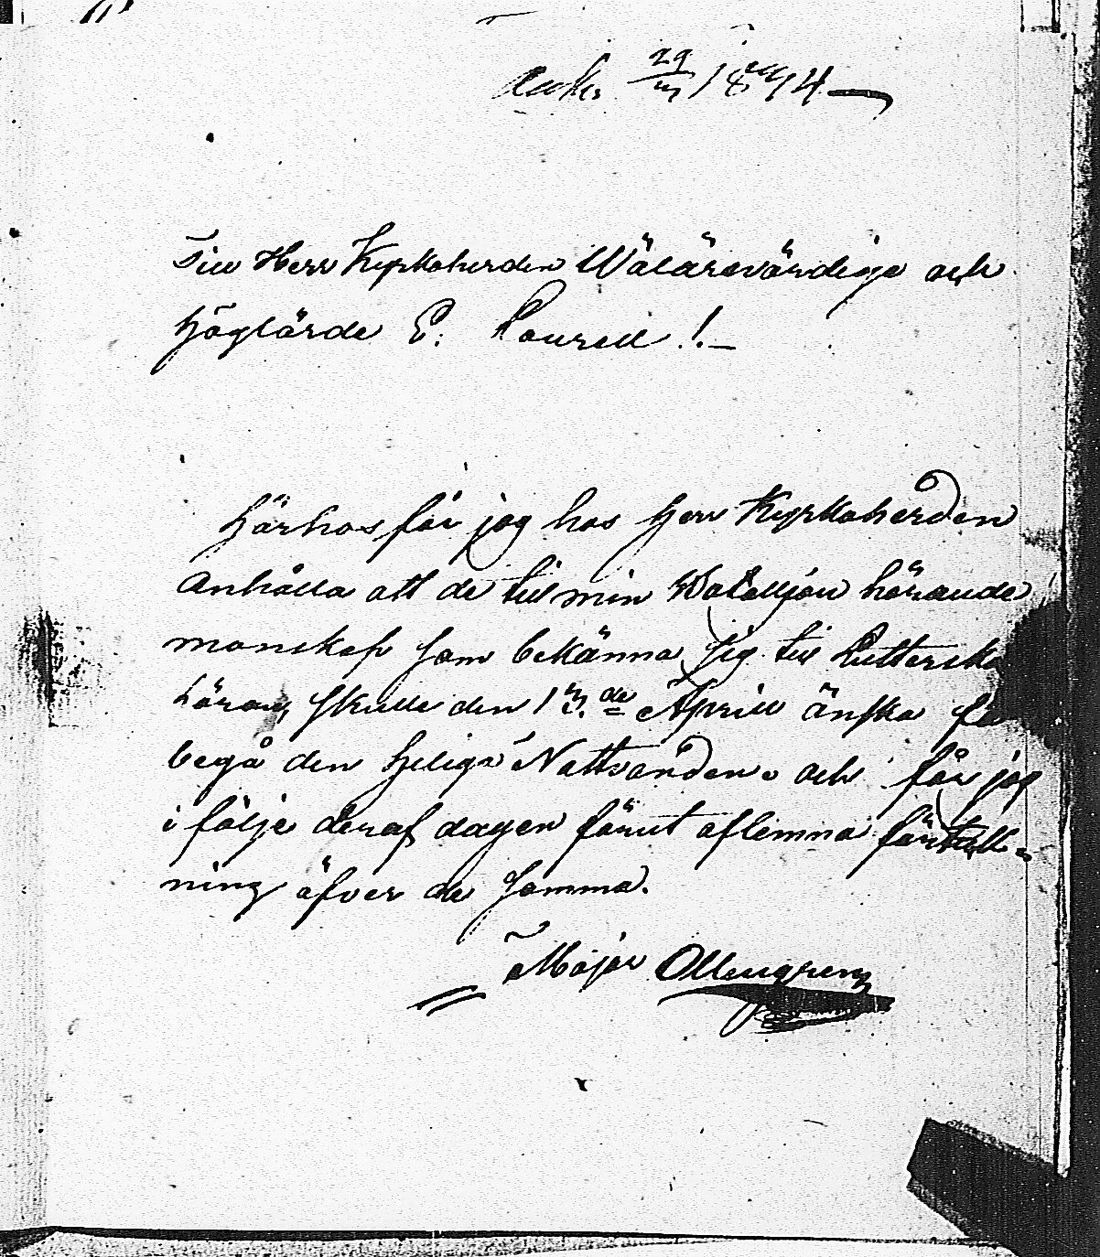 Ank. 29/3 1874
Till Herr Kyrkoherden Wälärevärdige och
Höglärde E. Laurell!.—
Härhos får jag hos Herr Kyrkoherden
Anhålla att de till min Bataljon hörande
manskap som bekänna sig till Lutterska
Läran, skulle den 13de April önska få
begå den heliga Nattvarden. och får jag
i följe deraf dagen förut aflemna förtäck-
ning öfver de samma.
Major Ollengren